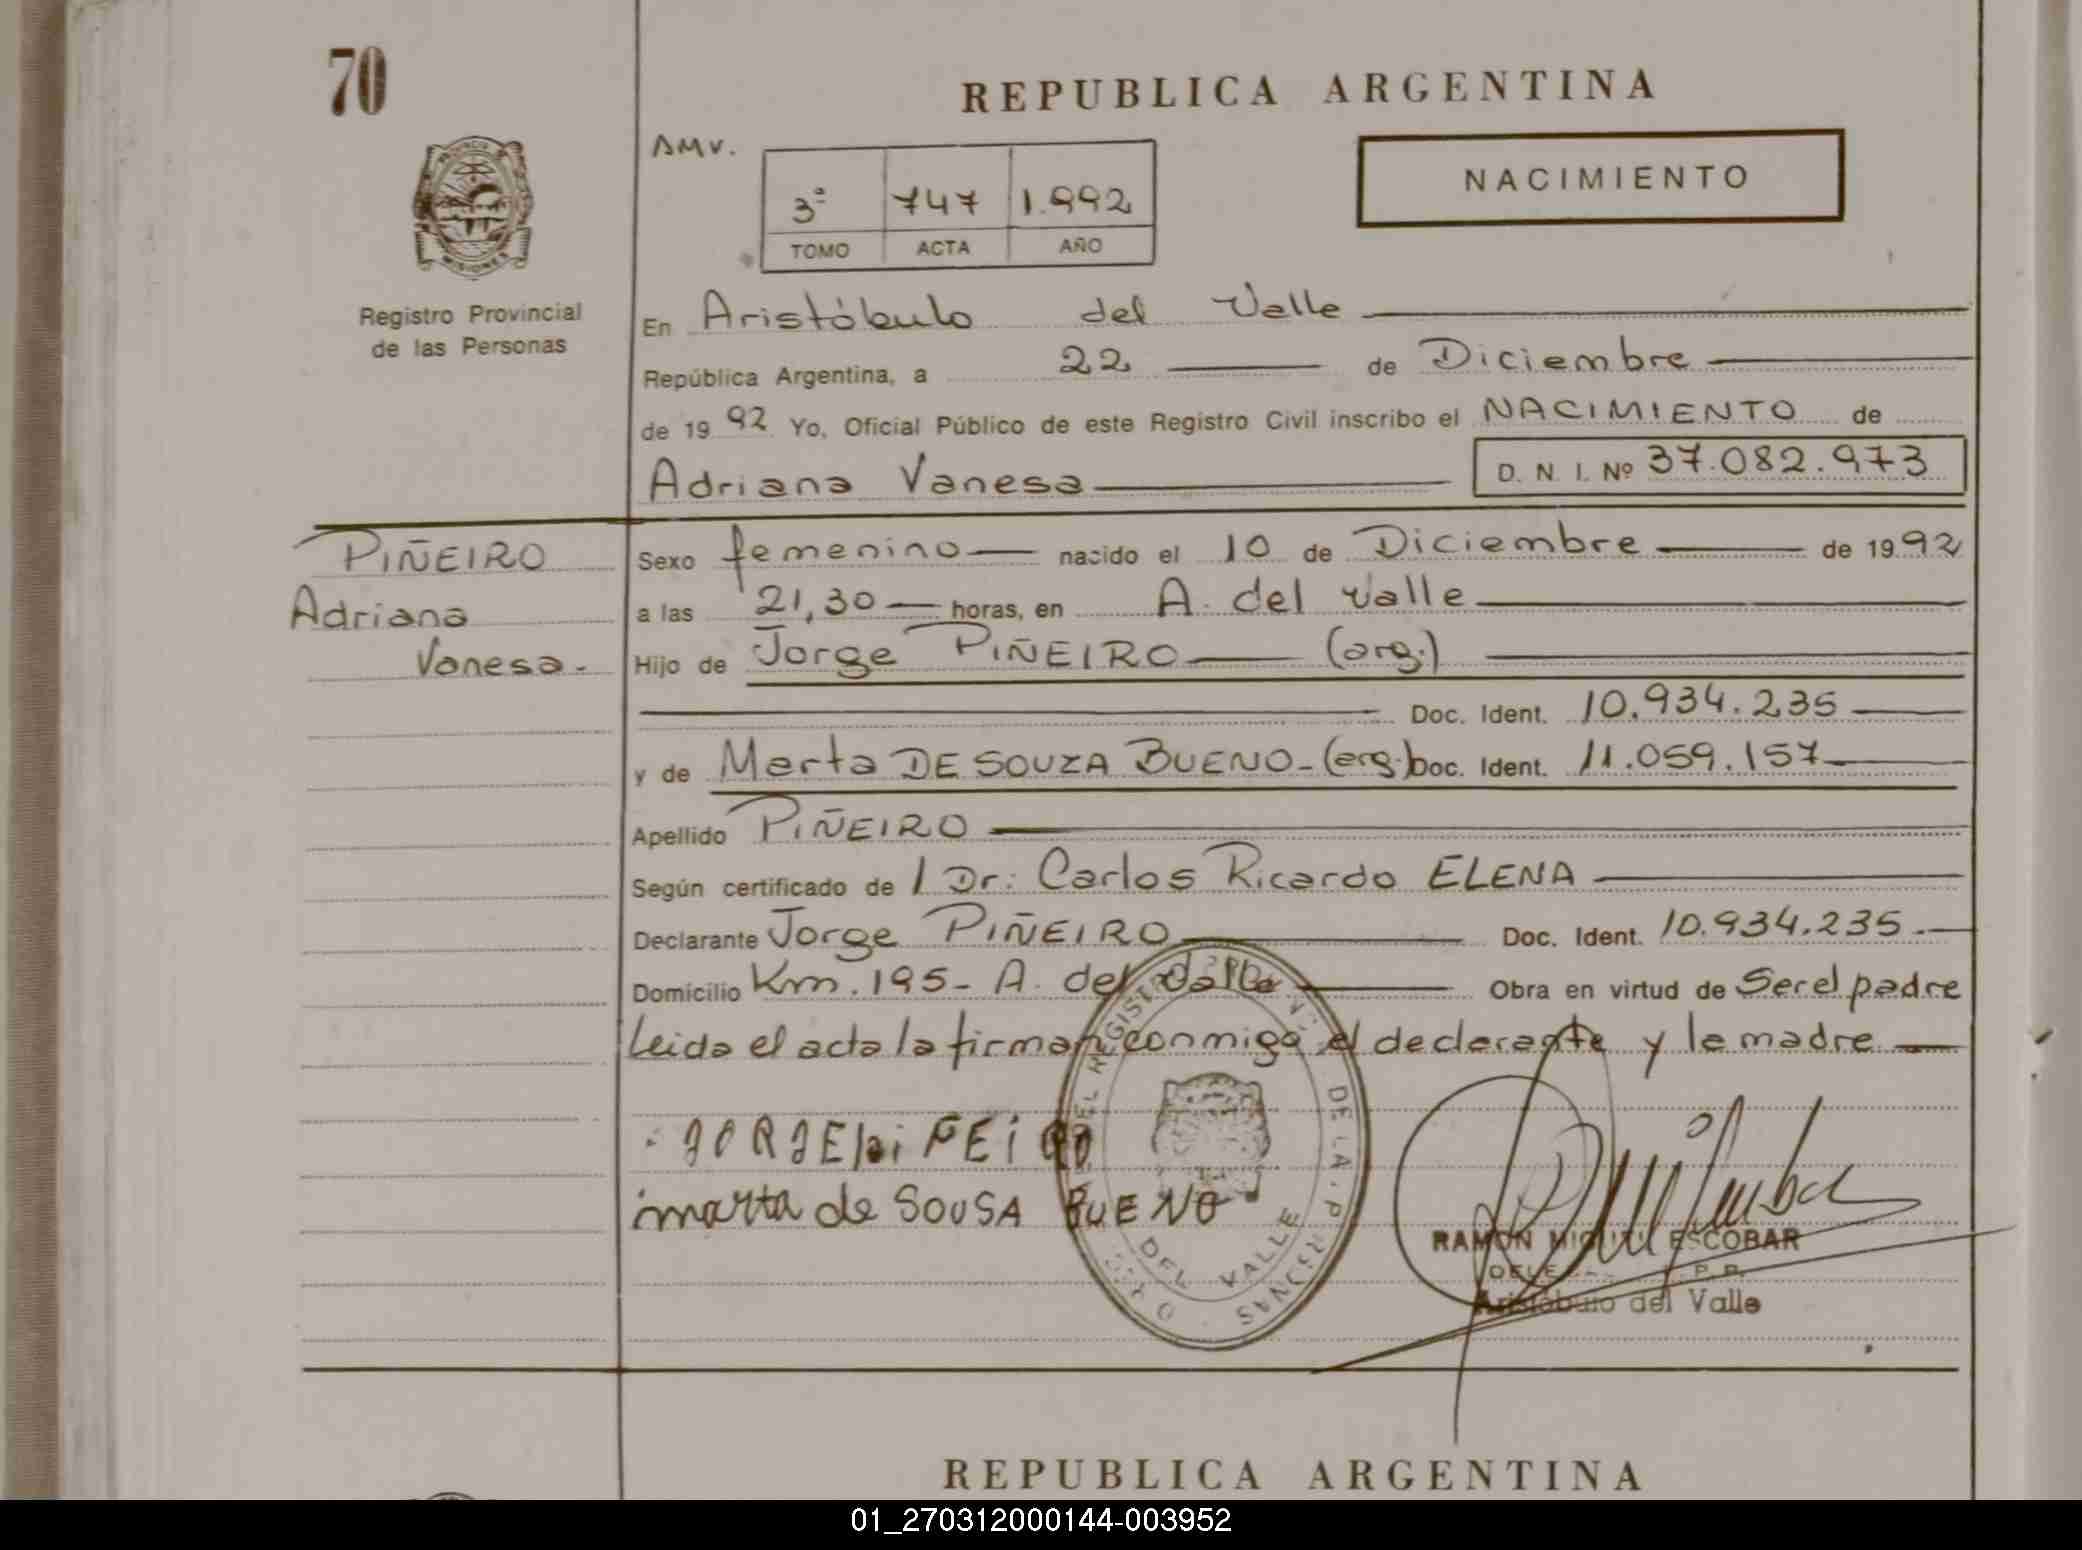 70
REPUBLICA ARGENTINA
AMV.
3º 747 1.992
TOMO ACTA AÑO
NACIMIENTO
PROVINCIA
MISIONES
Registro Provincial
de las Personas
En Aristóbulo del Valle
República Argentina, a 22 de Diciembre
de 1992 Yo, Oficial Público de este Registro Civil inscribo el NACIMIENTO de
Adriana Vanesa D. N. I. Nº 37.082.973
PIÑEIRO
Adriana
Vanesa.
Sexo femenino nacido el 10 de Diciembre de 1992
a las 21,30 horas, en A. del Valle
Hijo de Jorge PIÑEIRO (arg.)
Doc. Ident. 10.934.235
y de Marta DE SOUZA BUENO - (arg.) Doc. Ident. 11.059.157
Apellido PIÑEIRO
Según certificado de / Dr: Carlos Ricardo ELENA
Declarante Jorge PIÑEIRO Doc. Ident. 10.934.235.
Domicilio Km. 195 - A. del Valle Obra en virtud de Ser el padre
Leida el acta la firman conmigo el declarante y la madre
JORJE piÑEiRO
marta de SOUSA BUENO
DEL VALLE
DE LA P PERSONAS
RAMON MIGUEL ESCOBAR
Aristóbulo del Valle
REPUBLICA ARGENTINA
01_270312000144-003952